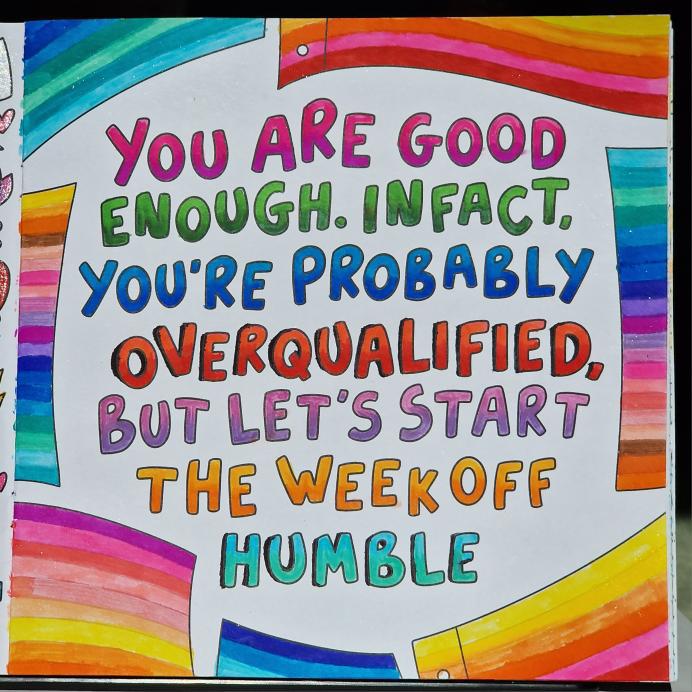 YOU ARE GOOD
ENOUGH. INFACT,
YOU'RE PROBABLY
OVERQUALIFIED,
BUT LET'S START
THE WEEK OFF
HUMBLE